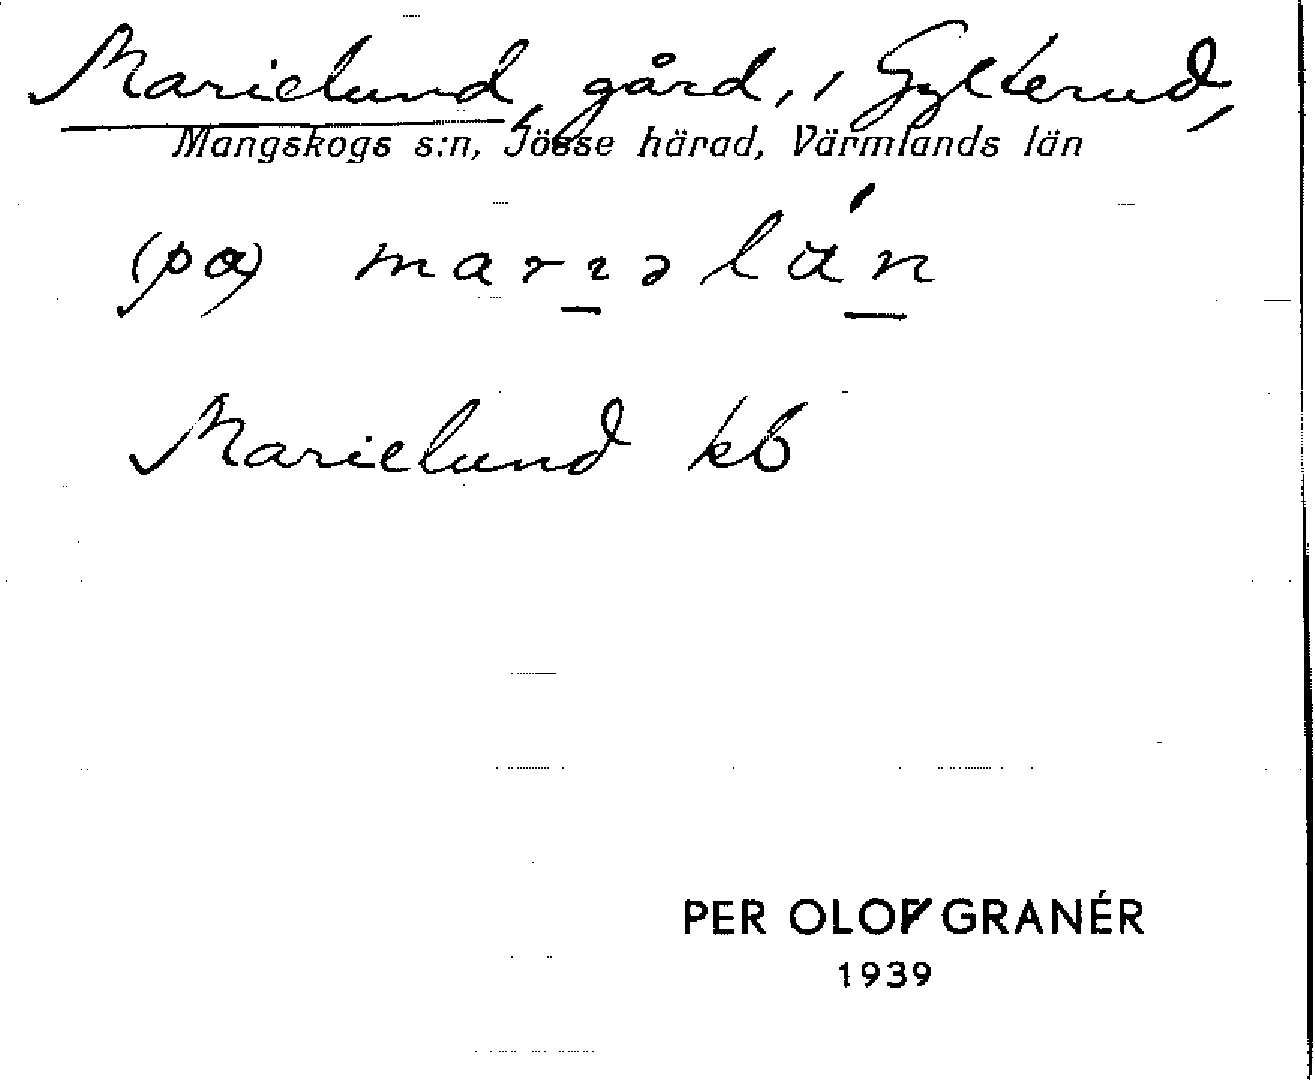 Marielund, gård, i Gylterud,
Mangskogs s:n, Jösse härad, Värmlands län
(pa) marɪəlún
Marielund kb
PER OLOF GRANÉR
1939